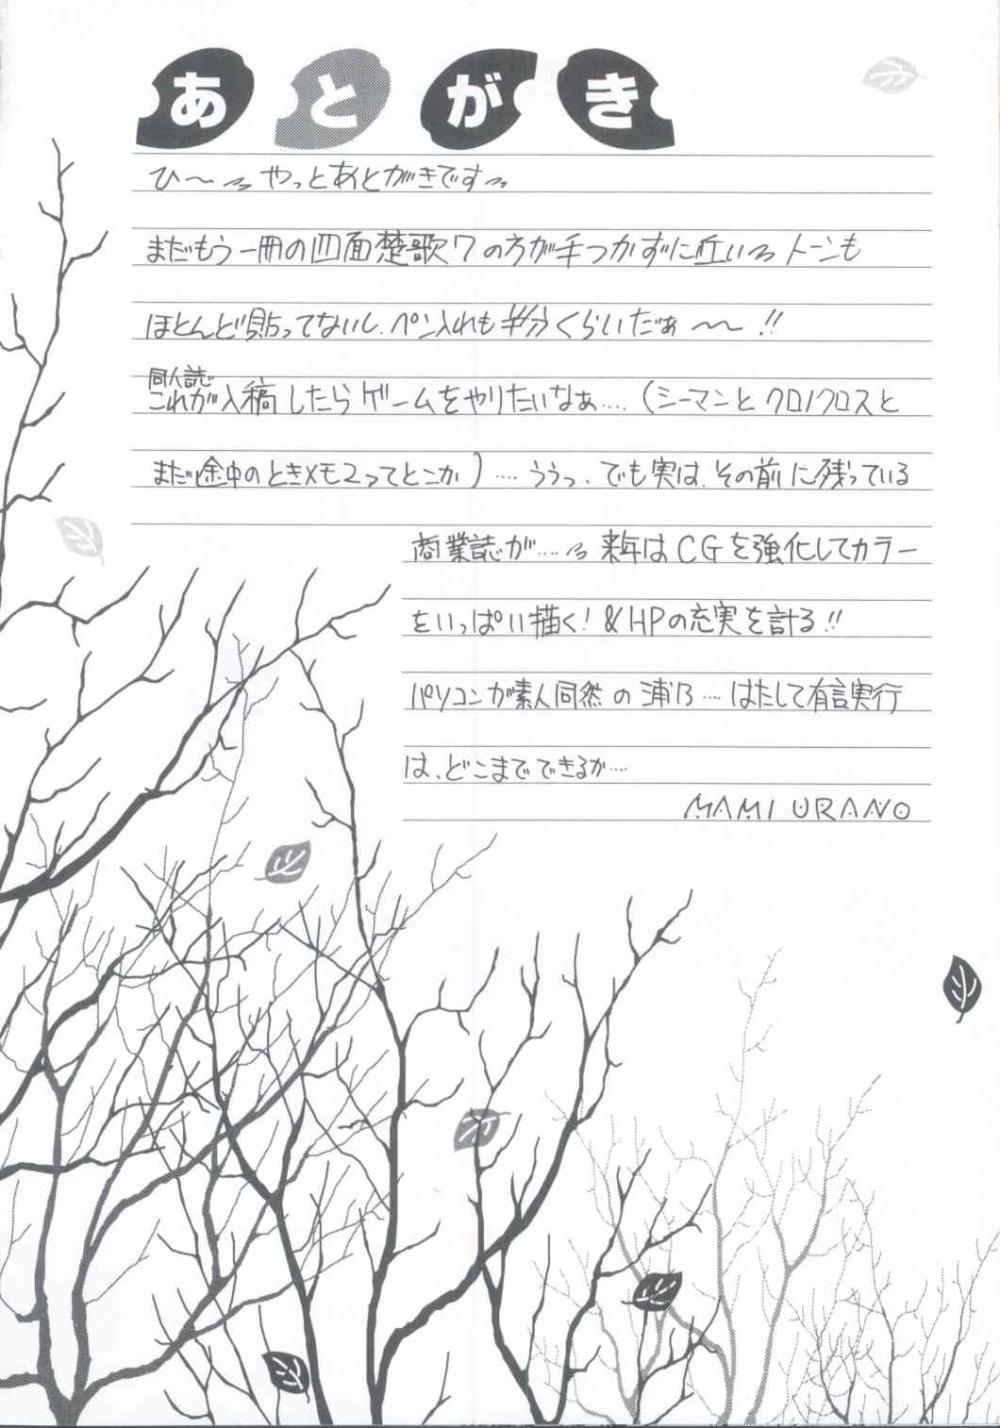 あとがき
ひ～やっとあとがきです
まだもう一冊の四面楚歌7の方が手つかずに近いトーンも
ほとんど貼ってないし、ペン入れも半分くらいだぁ～～!!
同人誌
これが入稿したらゲームをやりたいなぁ....(シーマンとクロノクロスと
まだ途中のときメモ2ってとこか)....ううっ、でも実は、その前に残っている
商業誌が.... 来年はCGを強化してカラー
をいっぱい描く!&HPの充実を計る!!
パソコンが素人同然の浦乃....はたして有言実行
は、どこまでできるか....
MAMI URANO